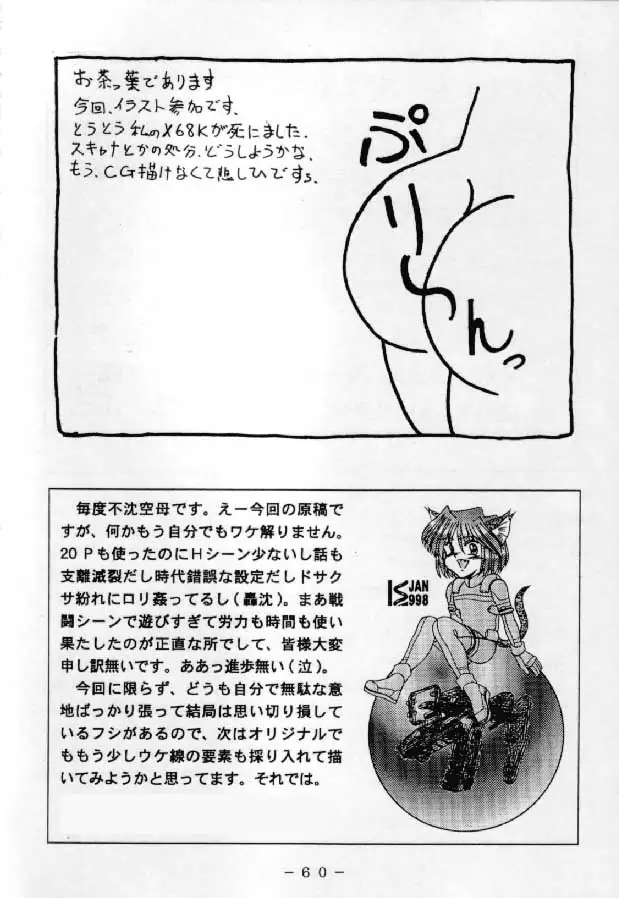 お茶っ葉であります
今回、イラスト参加です。
とうとう私のX68Kが死にました。
スキャナとかの処分、どうしようかな。
もう、CG描けなくて悲しひですぅ。
ぷ
り
〜
んっ
毎度不沈空母です。えー今回の原稿で
すが、何かもう自分でもワケ解りません。
20Pも使ったのにHシーン少ないし話も
支離滅裂だし時代錯誤な設定だしドサク
サ紛れにロリ姦ってるし(轟沈)。まあ戦
闘シーンで遊びすぎて労力も時間も使い
果たしたのが正直な所でして、皆様大変
申し訳無いです。ああっ進歩無い(泣)。
今回に限らず、どうも自分で無駄な意
地ばっかり張って結局は思い切り損して
いるフシがあるので、次はオリジナルで
ももう少しウケ線の要素も採り入れて描
いてみようかと思ってます。それでは。
JAN
1998
-60-